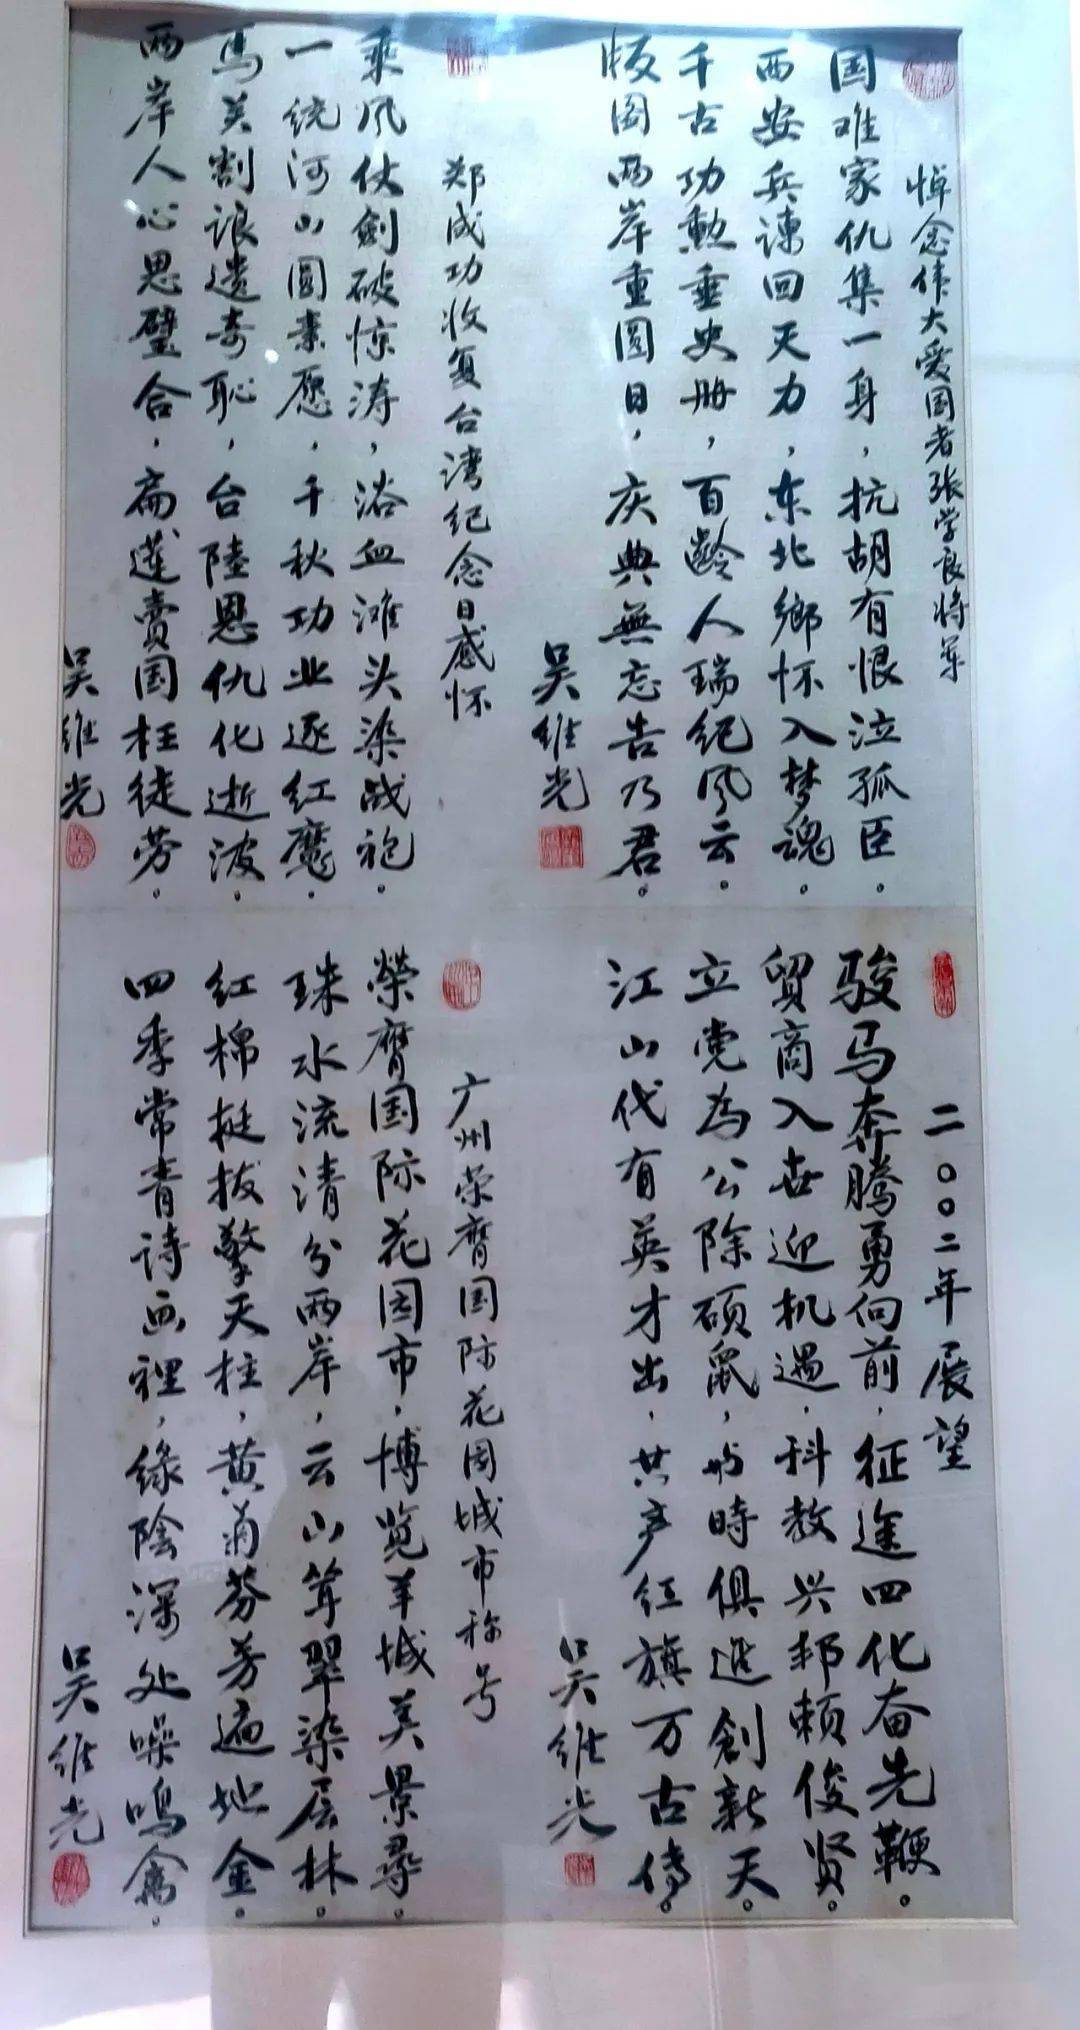 悼念伟大爱国者张学良将军
国难家仇集一身，抗胡有恨泣孤臣。
西安兵谏回天力，东北鄉怀入梦魂。
千古功勲垂史册，百齡人瑞纪风云。
版图两岸重圆日，庆典無忘告乃君。
吴维光
郑成功收复台湾纪念日感怀
乘风仗劍破惊涛，浴血滩头染战袍。
一统河山圆素愿，千秋功业逐红魔。
馬关割让遗奇耻，台陸恩仇化逝波。
两岸人心思璧合，扁莲賣国枉徒劳。
吴维光
二〇〇二年展望
骏马奔腾勇向前，征途四化奋先鞭。
贸商入世迎机遇，科教兴邦赖俊贤。
立党为公除硕鼠，与時俱進創新天。
江山代有英才出，共产红旗万古传。
吴维光
广州荣膺国际花园城市称号
榮膺国际花园市，博览羊城美景尋。
珠水流清分两岸，云山耸翠染层林。
红棉挺拔擎天柱，黄菊芬芳遍地金。
四季常青诗画裡，绿陰深处噪鳴禽。
吴维光